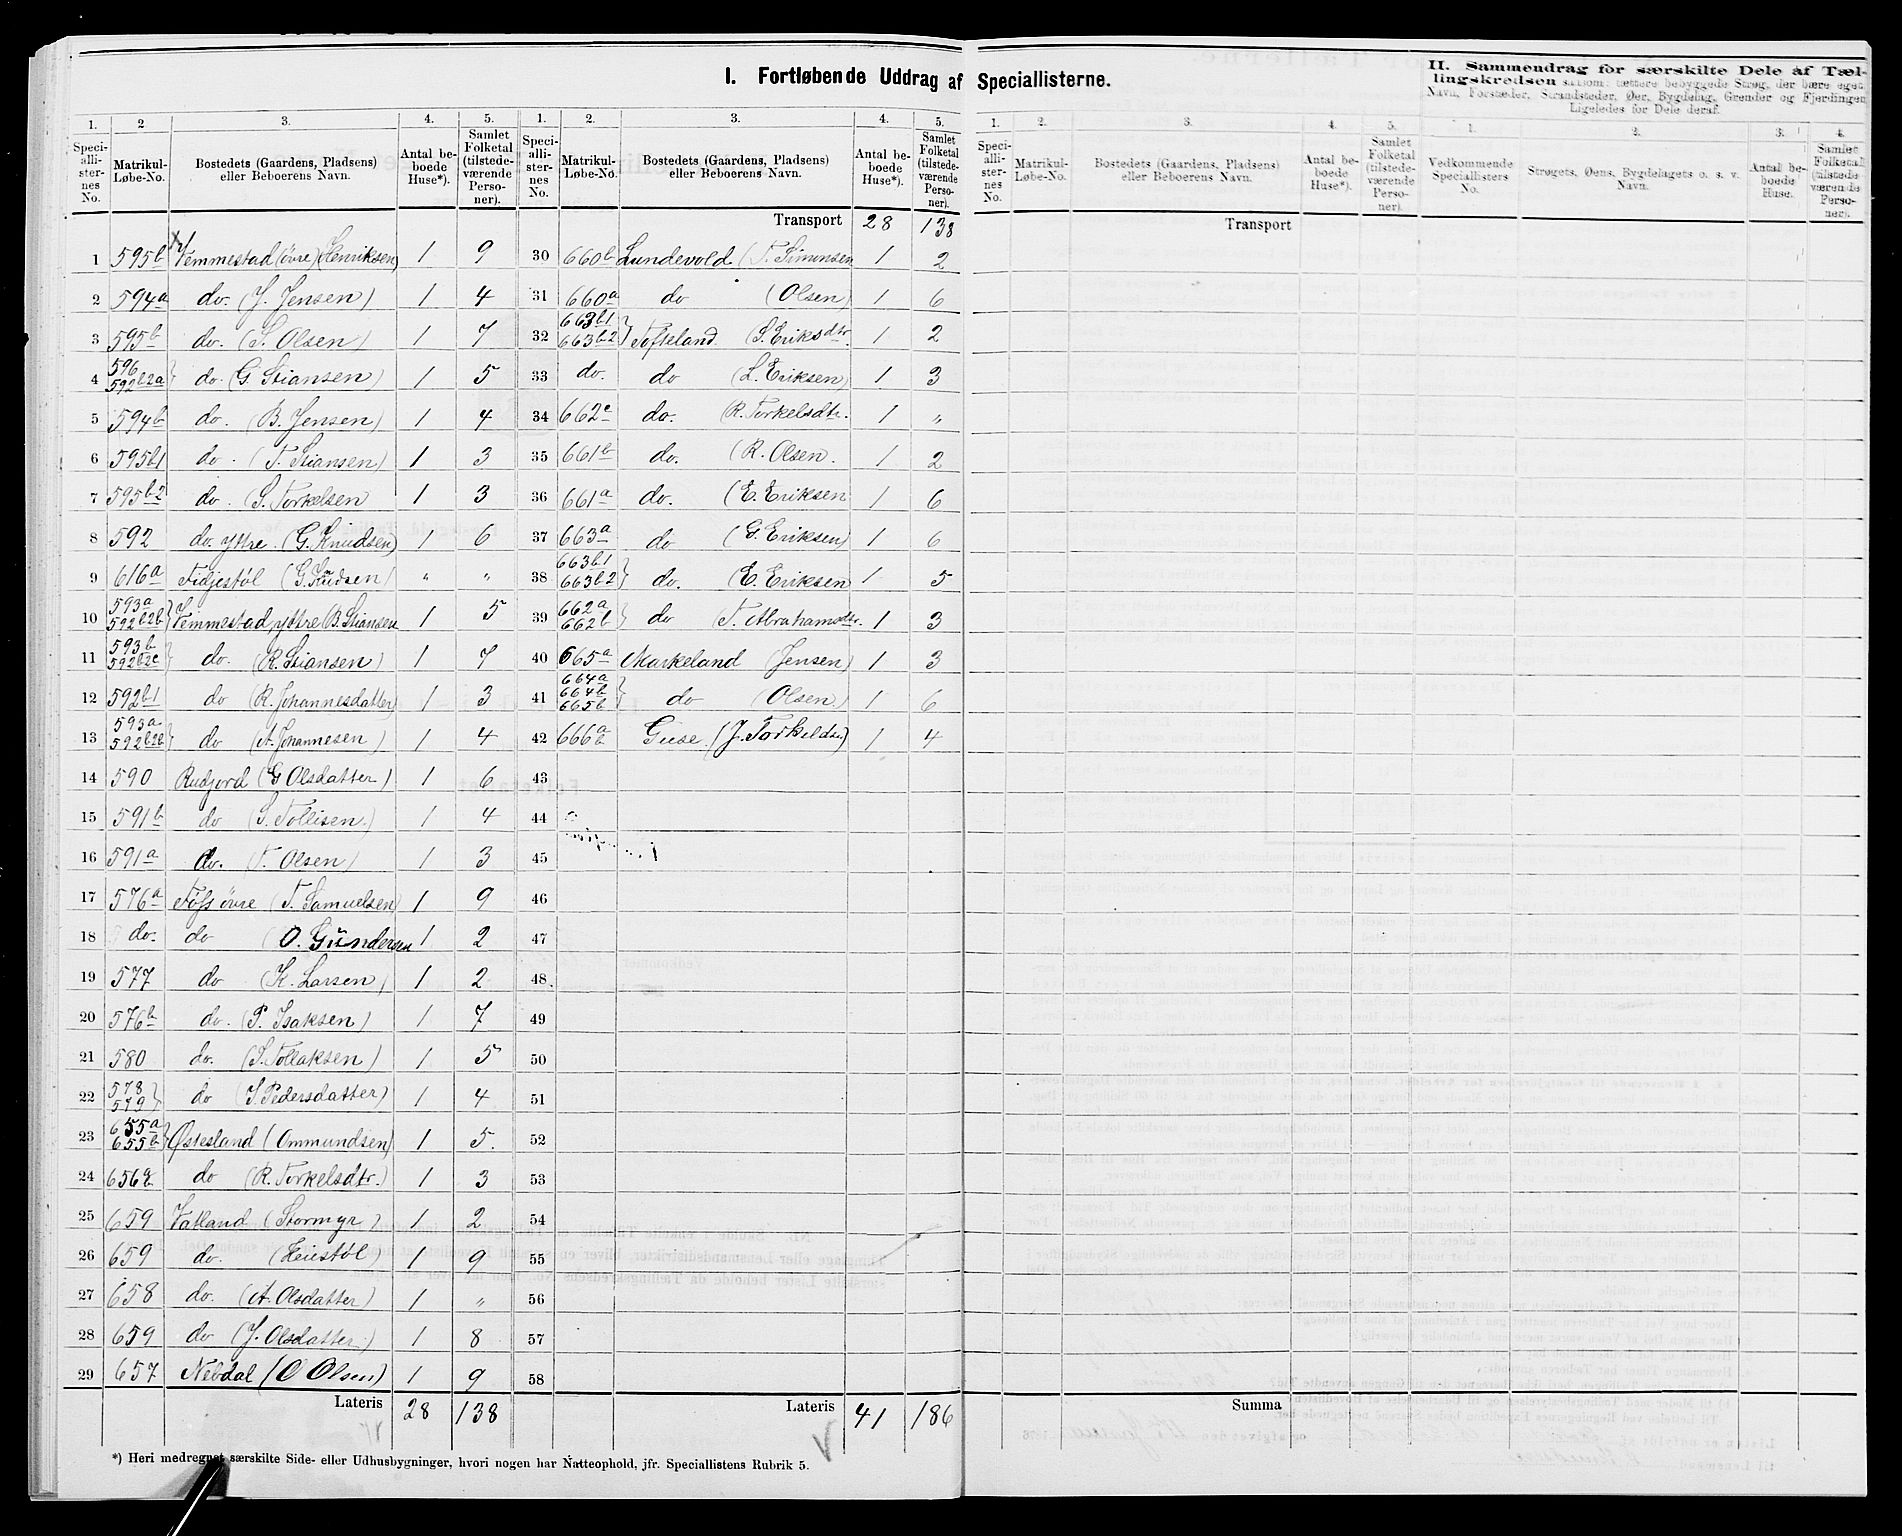 I. Fortløbende Uddrag af Speciallisterne.
II. Sammendrag for særskilte Dele af Tæl-
lingskredsen saasom: tættere bebyggede Strøg, der bære eget
Navn, Forstæder, Strandsteder, Øer, Bygdelag, Grender og Fjerdingen
Ligeledes for Dele deraf.
1. 2 3. 4. 5. 1. 2. 3. 4. 5. 1. 2. 3. 4. 5. 1. 2. 3. 4.
Speci-alli-ster-nes No. Matrikul-Løbe-No. Bostedets (Gaardens, Pladsens) eller Beboerens Navn. Antal be-boede Huse*). Samlet Folketal (tilstede-værende Perso-ner).
Speci-alli-ster-nes No. Matrikul-Løbe-No. Bostedets (Gaardens, Pladsens) eller Beboerens Navn. Antal be-boede Huse*). Samlet Folketal (tilstede-værende Perso-ner).
Speci-alli-ster-nes No. Matrikul-Løbe-No. Bostedets (Gaardens, Pladsens) eller Beboerens Navn. Antal be-boede Huse*). Samlet Folketal (tilstede-værende Perso-ner).
Vedkommende Speciallisters No. Strøgets, Øens, Bygdelagets o. s. v. Navn. Antal be-boede Huse. Samlet Folketal (tilstede-værende Perso-ner).
1 595b Vemmestad (övre) (Henriksen) 1 9
2 594a do. (J. Jensen) 1 4
3 595b do. (S. Olsen) 1 7
4 596 592b2a } do. (G. Stiansen) 1 5
5 594b do. (B. Jensen) 1 4
6 595b1 do. (T. Stiansen) 1 3
7 595b2 do. (S. Torkelsen 1 3
8 592 do. yttre. (G. Knudsen) 1 6
9 616a Fidjestöl (G. Knudsen) " "
10 593a 592b2b } Vemmestad, yttre B. Stiansen 1 5
11 593b 592b2c } do. (R. Stiansen) 1 7
12 592b1 do (R. Johannesdatter) 1 3
13 593a 592b2b } do (A. Johannesen) 1 4
14 590 Rudjord (G Olsdatter) 1 6
15 591b do (S. Tollisen.) 1 4
16 591a do. (T. Olsen) 1 3
17 576a Foss övre (T. Samuelsen) 1 9
18 do. do (O. Gundersen 1 2
19 577 do (K. Larsen) 1 2
20 576b do. (P. Isaksen) 1 7
21 580 do. (S. Tollaksen) 1 5
22 578 579 } do (S. Pedersdatter) 1 4
23 655a 655b } Østesland (Ommundsen) 1 5.
24 656 do (R. Torkelsdtr.) 1 3
25 659 Vatland (Stormyr) 1 2
26 659 do. (Heiestöl) 1 9
27 658 do. (A. Olsdatter) 1 "
28 659 do (J. Olsdatter) 1 8
29 657 Nebdal (O Olsen) 1 9
Lateris 28 138
Transport 28 138
30 660b Lundevold (T. Simonsen 1 2
31 660a do (Olsen) 1 6
32 663b1 663b2 } Tofteland (S. Eriksdtr. 1 2
33 do. do (L. Eriksen) 1 3
34 662c do. (R. Torkelsdtr. 1 "
35 661b do. (R. Olsen. 1 2
36 661a do. (E. Eriksen 1 6
37 663a do (G. Eriksen) 1 6
38 663b1 663b2 } do. (E. Eriksen 1 5
39 662a 662b } do (T. Abrahamsdtr. 1 3
40 665a Markeland (Jensen) 1 3
41 664a 664b 665b } do (Olsen) 1 6
42 666a b Giese (J. Torkildsen) 1 4
43
44
45
46
47
48
49
50
51
52
53
54
55
56
57
58
Lateris 41 186
Transport
Summa
*) Heri medregnet særskilte Side- eller Udhusbygninger, hvori nogen har Natteophold, jfr. Speciallistens Rubrik 5.